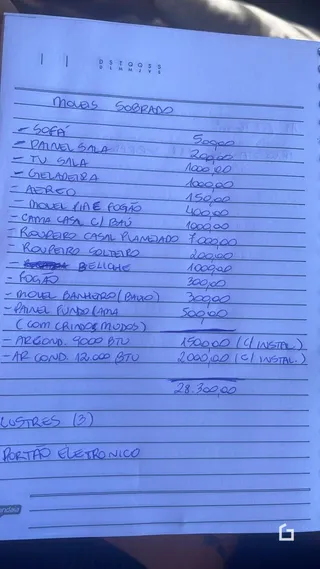 D S T Q Q S S
MOVEIS SOBRADO
- SOFÁ 500,00
- PAINEL SALA 200,00
- TV SALA 1000,00
- GELADEIRA 1000,00
- AEREO 150,00
- MOVEL PIA E FOGÃO 400,00
- CAMA CASAL C/ BAÚ 1000,00
- ROUPEIRO CASAL PLANEJADO 7000,00
- ROUPEIRO SOLTEIRO 200,00
- BELICHE 1000,00
- FOGÃO 300,00
- MOVEL BANHEIRO (BAIXO) 300,00
- PAINEL FUNDO CAMA 500,00
(COM CRIADOS MUDOS)
- AR COND. 9000 BTU 1500,00 (C/ INSTAL.)
- AR COND. 12.000 BTU 2000,00 (C/ INSTAL.)
28.300,00
LUSTRES (3)
PORTÃO ELETRONICO